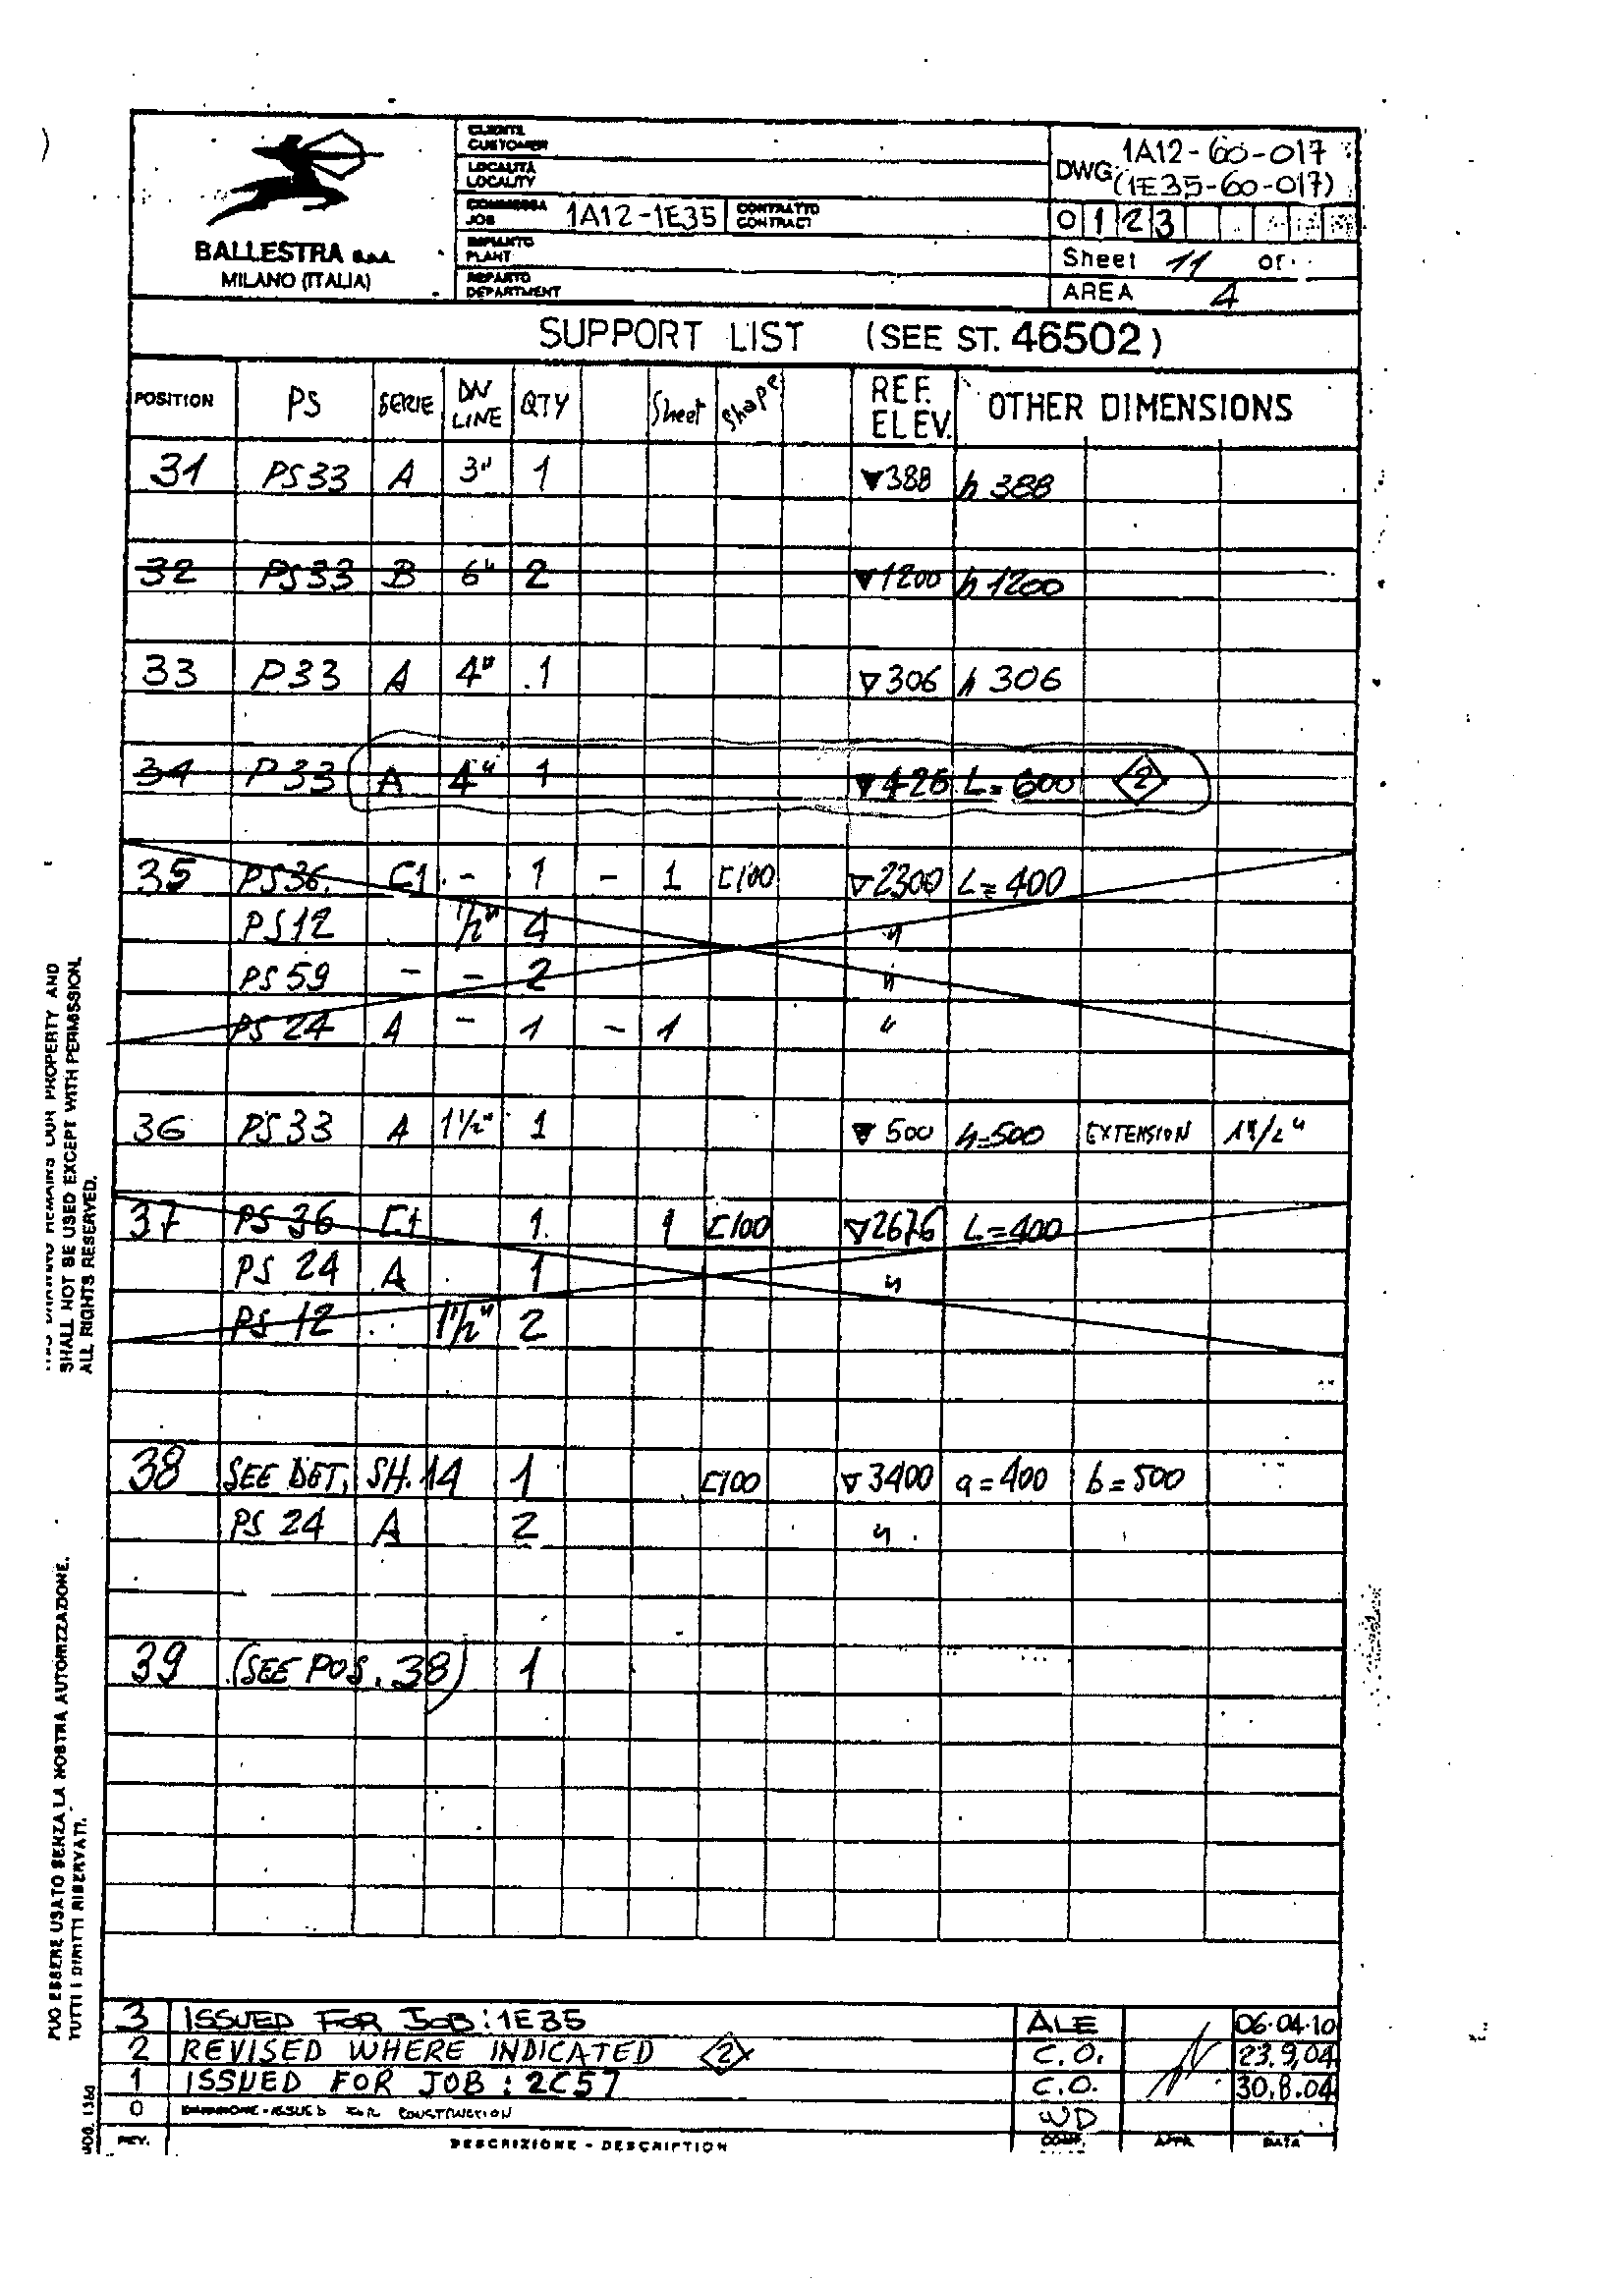 CLIENTE
CUSTOMER
LOCALITÀ
LOCALITY
COMMESSA
JOB 1A12-1E35 CONTRATTO
CONTRACT
IMPIANTO
PLANT
REPARTO
DEPARTMENT
BALLESTRA S.p.A.
MILANO (ITALIA)
DWG. 1A12-60-017
(1E35-60-017)
0 1 2 3
Sheet 11 of
AREA 4
SUPPORT LIST (SEE ST. 46502)
POSITION PS SERIE DN LINE QTY Sheet Shape REF. ELEV. OTHER DIMENSIONS
31 PS33 A 3" 1 ▼388 h 388
32 PS33 B 6" 2 ▼1200 h 1200
33 P33 A 4" 1 ▽306 h 306
34 P33 A 4" 1 ▼426 L=600 2
35 PS36 C1 - 1 - 1 [100 ▽2300 L=400
PS12 1/2" 4 "
PS59 - - 2 "
PS24 A - 1 - 1 "
36 PS33 A 1½" 1 ▼500 h=500 EXTENSION
37 PS36 C1 1 1 [100 ▽2676 L=400
PS 24 A 1 "
PS 12 1½" 2
38 SEE DET. SH.14 1 [100 ▽3400 a=400 b=500
PS 24 A 2 "
39 (SEE POS. 38) 1
3 ISSUED FOR JOB:1E35 ALE 06.04.10
2 REVISED WHERE INDICATED 2 C.O. 23.9.04
1 ISSUED FOR JOB: 2C57 C.O. 30.8.04
0 ISSUED FOR CONSTRUCTION WD
REV. DESCRIZIONE - DESCRIPTION COMP. APPR. DATA
REMAINS OUR PROPERTY AND
SHALL NOT BE USED EXCEPT WITH PERMISSION.
ALL RIGHTS RESERVED.
PUO ESSERE USATO SENZA LA NOSTRA AUTORIZZAZIONE.
TUTTI I DIRITTI RISERVATI.